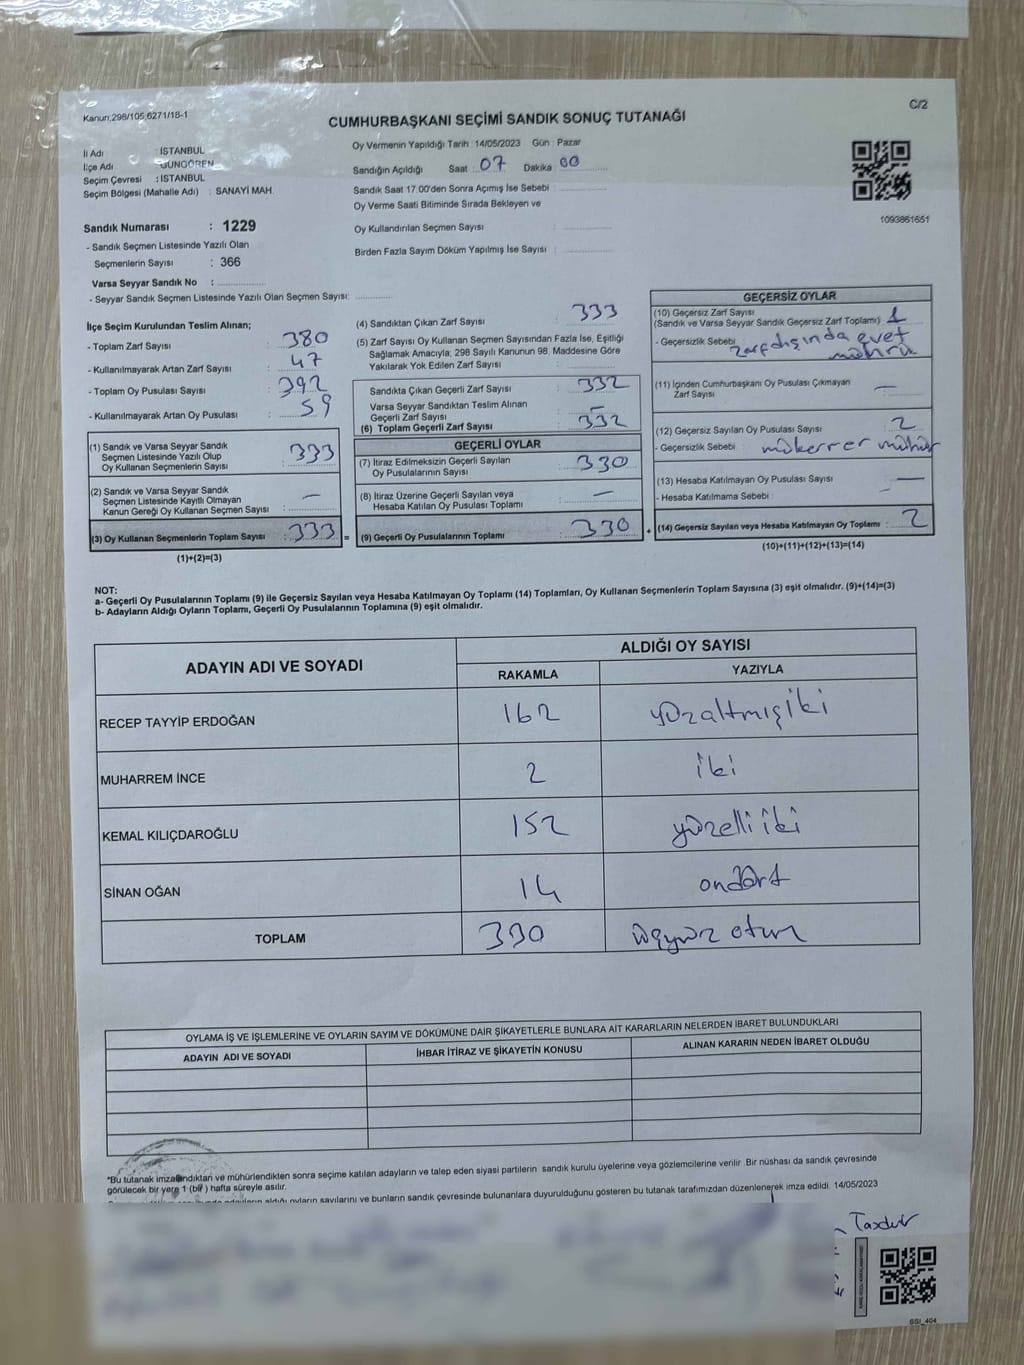 C/2
Kanun:298/105,6271/18-1
CUMHURBAŞKANI SEÇİMİ SANDIK SONUÇ TUTANAĞI
İl Adı : İSTANBUL
İlçe Adı : GÜNGÖREN
Seçim Çevresi : İSTANBUL
Seçim Bölgesi (Mahalle Adı) : SANAYİ MAH.
Oy Vermenin Yapıldığı Tarih : 14/05/2023 Gün : Pazar
Sandığın Açıldığı Saat : 07 Dakika 00
Sandık Saat 17.00'den Sonra Açılmış İse Sebebi :
Oy Verme Saati Bitiminde Sırada Bekleyen ve
Oy Kullandırılan Seçmen Sayısı :
Birden Fazla Sayım Döküm Yapılmış İse Sayısı :
1093861651
Sandık Numarası : 1229
- Sandık Seçmen Listesinde Yazılı Olan
Seçmenlerin Sayısı : 366
Varsa Seyyar Sandık No :
- Seyyar Sandık Seçmen Listesinde Yazılı Olan Seçmen Sayısı:
İlçe Seçim Kurulundan Teslim Alınan;
- Toplam Zarf Sayısı : 380
- Kullanılmayarak Artan Zarf Sayısı : 47
- Toplam Oy Pusulası Sayısı : 392
- Kullanılmayarak Artan Oy Pusulası : 59
(1) Sandık ve Varsa Seyyar Sandık
Seçmen Listesinde Yazılı Olup
Oy Kullanan Seçmenlerin Sayısı : 333
(2) Sandık ve Varsa Seyyar Sandık
Seçmen Listesinde Kayıtlı Olmayan
Kanun Gereği Oy Kullanan Seçmen Sayısı : —
(3) Oy Kullanan Seçmenlerin Toplam Sayısı : 333 =
(1)+(2)=(3)
(4) Sandıktan Çıkan Zarf Sayısı : 333
(5) Zarf Sayısı Oy Kullanan Seçmen Sayısından Fazla İse, Eşitliği
Sağlamak Amacıyla; 298 Sayılı Kanunun 98. Maddesine Göre
Yakılarak Yok Edilen Zarf Sayısı :
Sandıkta Çıkan Geçerli Zarf Sayısı : 332
Varsa Seyyar Sandıktan Teslim Alınan
Geçerli Zarf Sayısı : —
(6) Toplam Geçerli Zarf Sayısı : 332
GEÇERLİ OYLAR
(7) İtiraz Edilmeksizin Geçerli Sayılan
Oy Pusulalarının Sayısı : 330
(8) İtiraz Üzerine Geçerli Sayılan veya
Hesaba Katılan Oy Pusulası Toplamı : —
(9) Geçerli Oy Pusulalarının Toplamı : 330 +
GEÇERSİZ OYLAR
(10) Geçersiz Zarf Sayısı
(Sandık ve Varsa Seyyar Sandık Geçersiz Zarf Toplamı) : 1
- Geçersizlik Sebebi : zarf dışında evet
mührü
(11) İçinden Cumhurbaşkanı Oy Pusulası Çıkmayan
Zarf Sayısı : —
(12) Geçersiz Sayılan Oy Pusulası Sayısı : 2
- Geçersizlik Sebebi : mükerrer mühür
(13) Hesaba Katılmayan Oy Pusulası Sayısı : —
- Hesaba Katılmama Sebebi :
(14) Geçersiz Sayılan veya Hesaba Katılmayan Oy Toplamı : 2
(10)+(11)+(12)+(13)=(14)
NOT:
a- Geçerli Oy Pusulalarının Toplamı (9) ile Geçersiz Sayılan veya Hesaba Katılmayan Oy Toplamı (14) Toplamları, Oy Kullanan Seçmenlerin Toplam Sayısına (3) eşit olmalıdır. (9)+(14)=(3)
b- Adayların Aldığı Oyların Toplamı, Geçerli Oy Pusulalarının Toplamına (9) eşit olmalıdır.
ADAYIN ADI VE SOYADI
ALDIĞI OY SAYISI
RAKAMLA YAZIYLA
RECEP TAYYİP ERDOĞAN 162 yüzaltmışiki
MUHARREM İNCE 2 iki
KEMAL KILIÇDAROĞLU 152 yüzelli iki
SİNAN OĞAN 14 ondört
TOPLAM 330 üçyüz otuz
OYLAMA İŞ VE İŞLEMLERİNE VE OYLARIN SAYIM VE DÖKÜMÜNE DAİR ŞİKAYETLERLE BUNLARA AİT KARARLARIN NELERDEN İBARET BULUNDUKLARI
ADAYIN ADI VE SOYADI İHBAR İTİRAZ VE ŞİKAYETİN KONUSU ALINAN KARARIN NEDEN İBARET OLDUĞU
*Bu tutanak imzalandıktan ve mühürlendikten sonra seçime katılan adayların ve talep eden siyasi partilerin sandık kurulu üyelerine veya gözlemcilerine verilir. Bir nüshası da sandık çevresinde
görülecek bir yere 1 (bir) hafta süreyle asılır.
aldığı oyların sayılarını ve bunların sandık çevresinde bulunanlara duyurulduğunu gösteren bu tutanak tarafımızdan düzenlenerek imza edildi. 14/05/2023
SSI_404